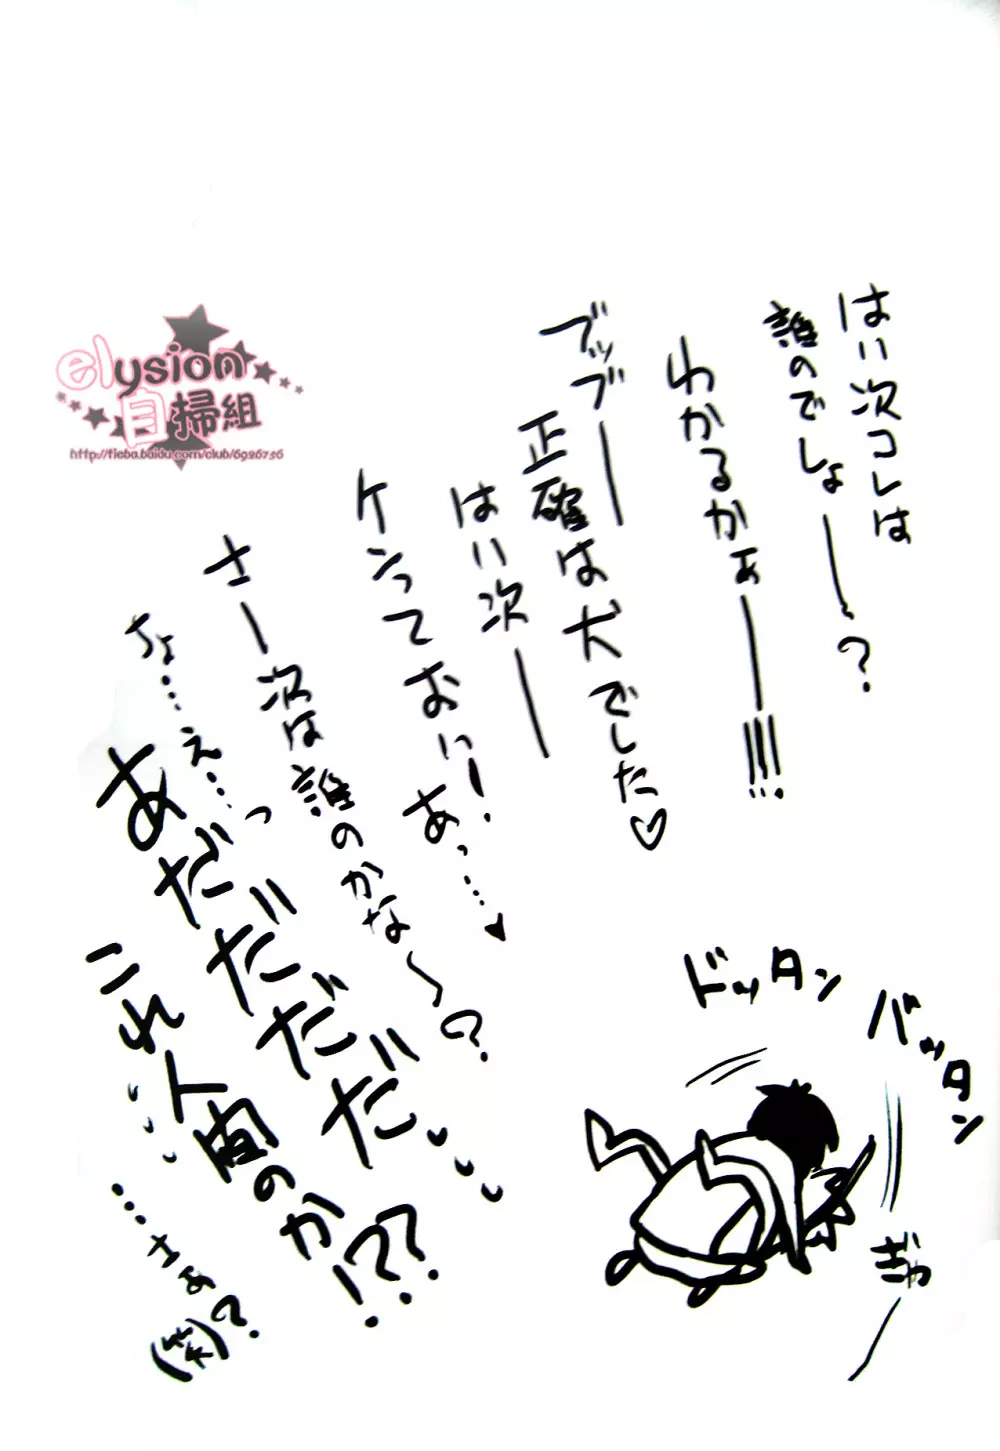 はい次コレは
誰のでしょーー？
わかるかぁーー!!!!
ブッブーー
正確は犬でした♡
はい次ーー
ケンっておい！
あっ…♥
さー次は誰のかな〜？
ちょ…え…っ
あだだだだだ
これ人間のか!??
…さぁ
(笑)?
ドッタン
バッタン
ぎゃー
elysion
自掃組
http://tieba.baidu.com/club/6926756